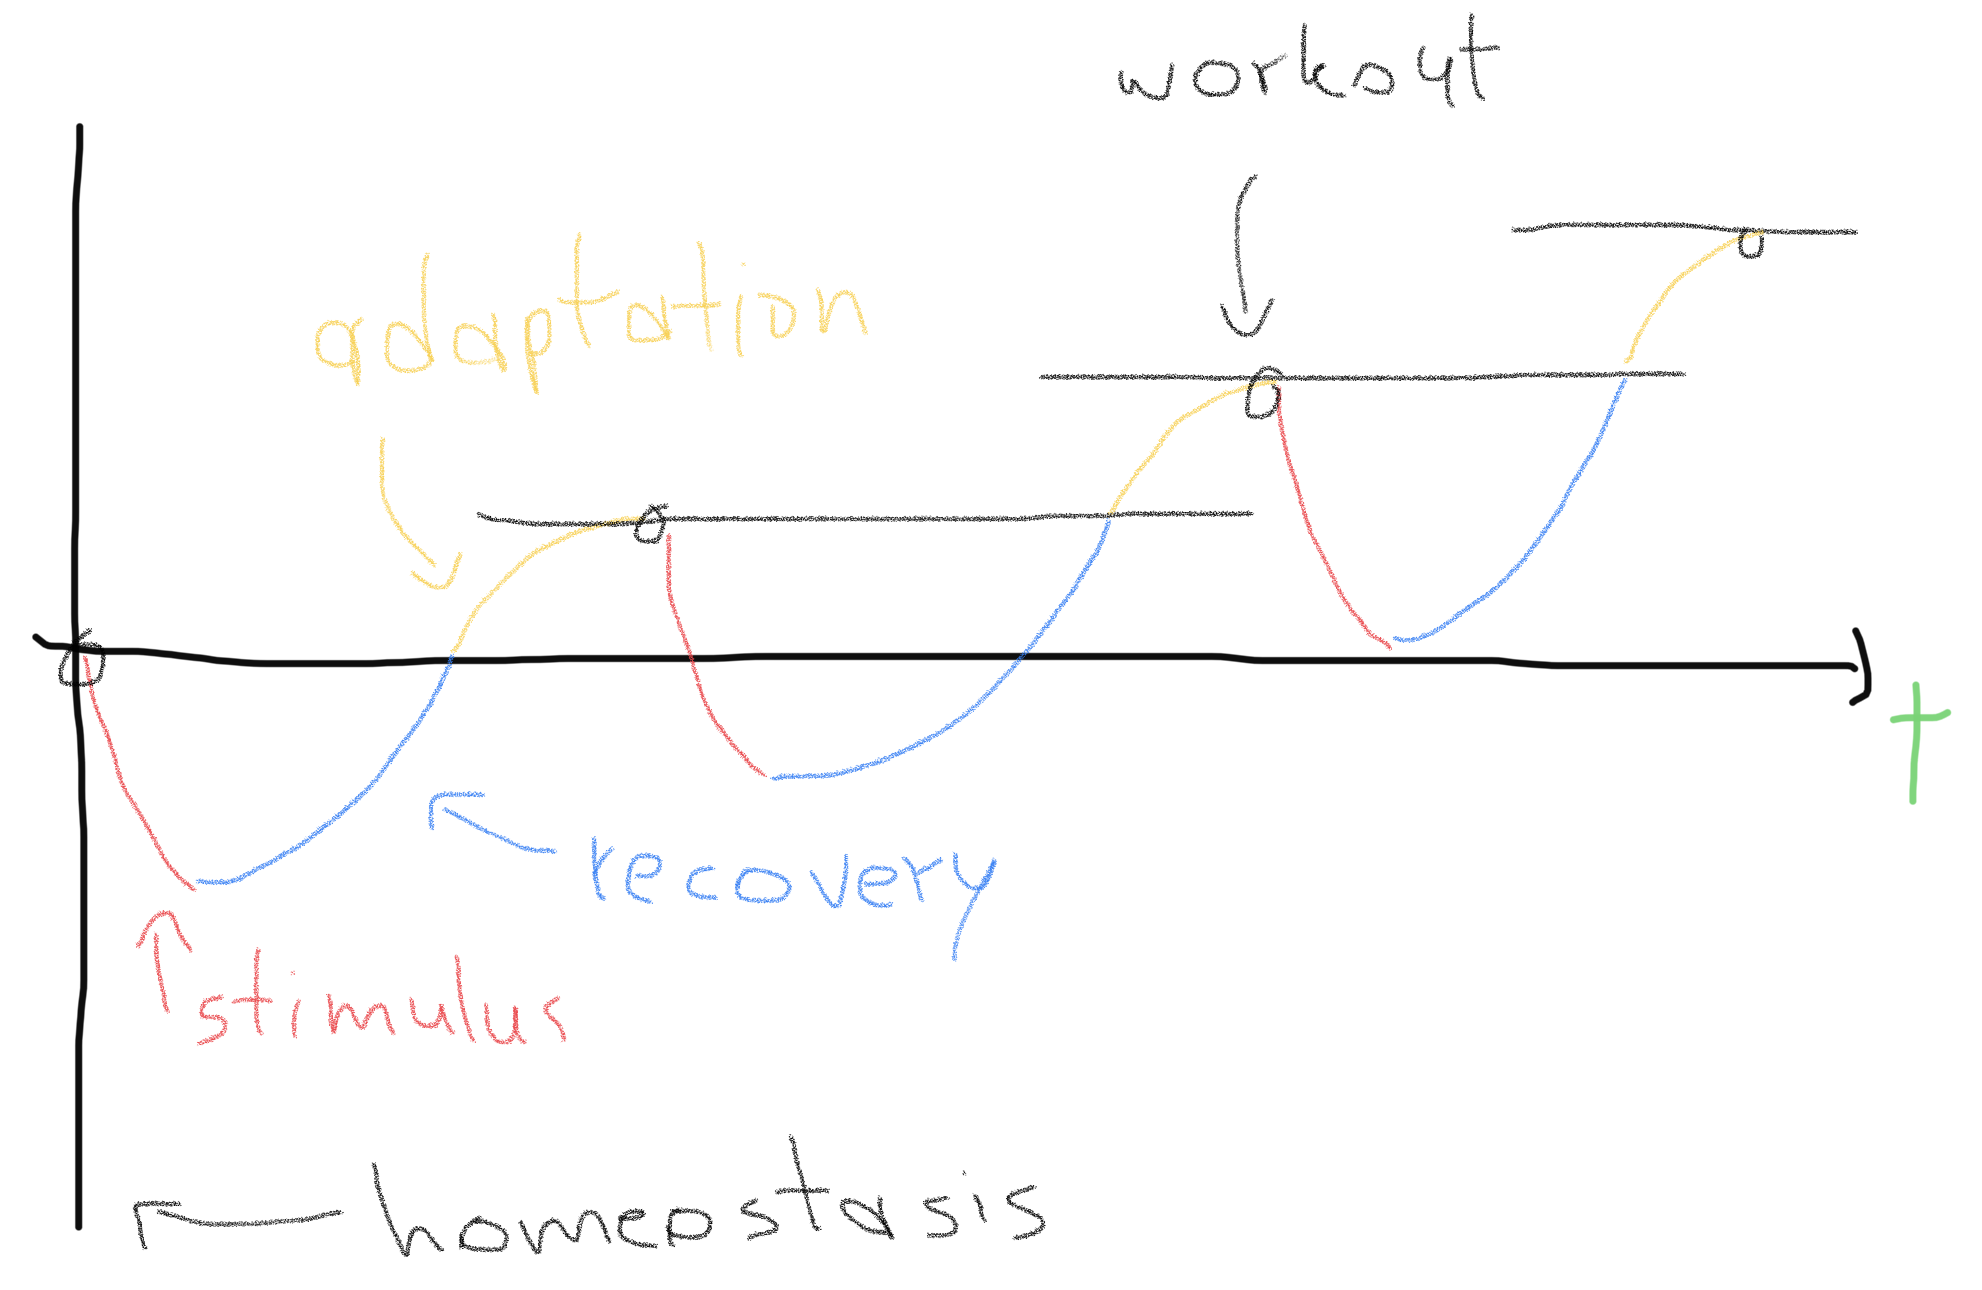 workout
adaptation
t
recovery
stimulus
homeostasis